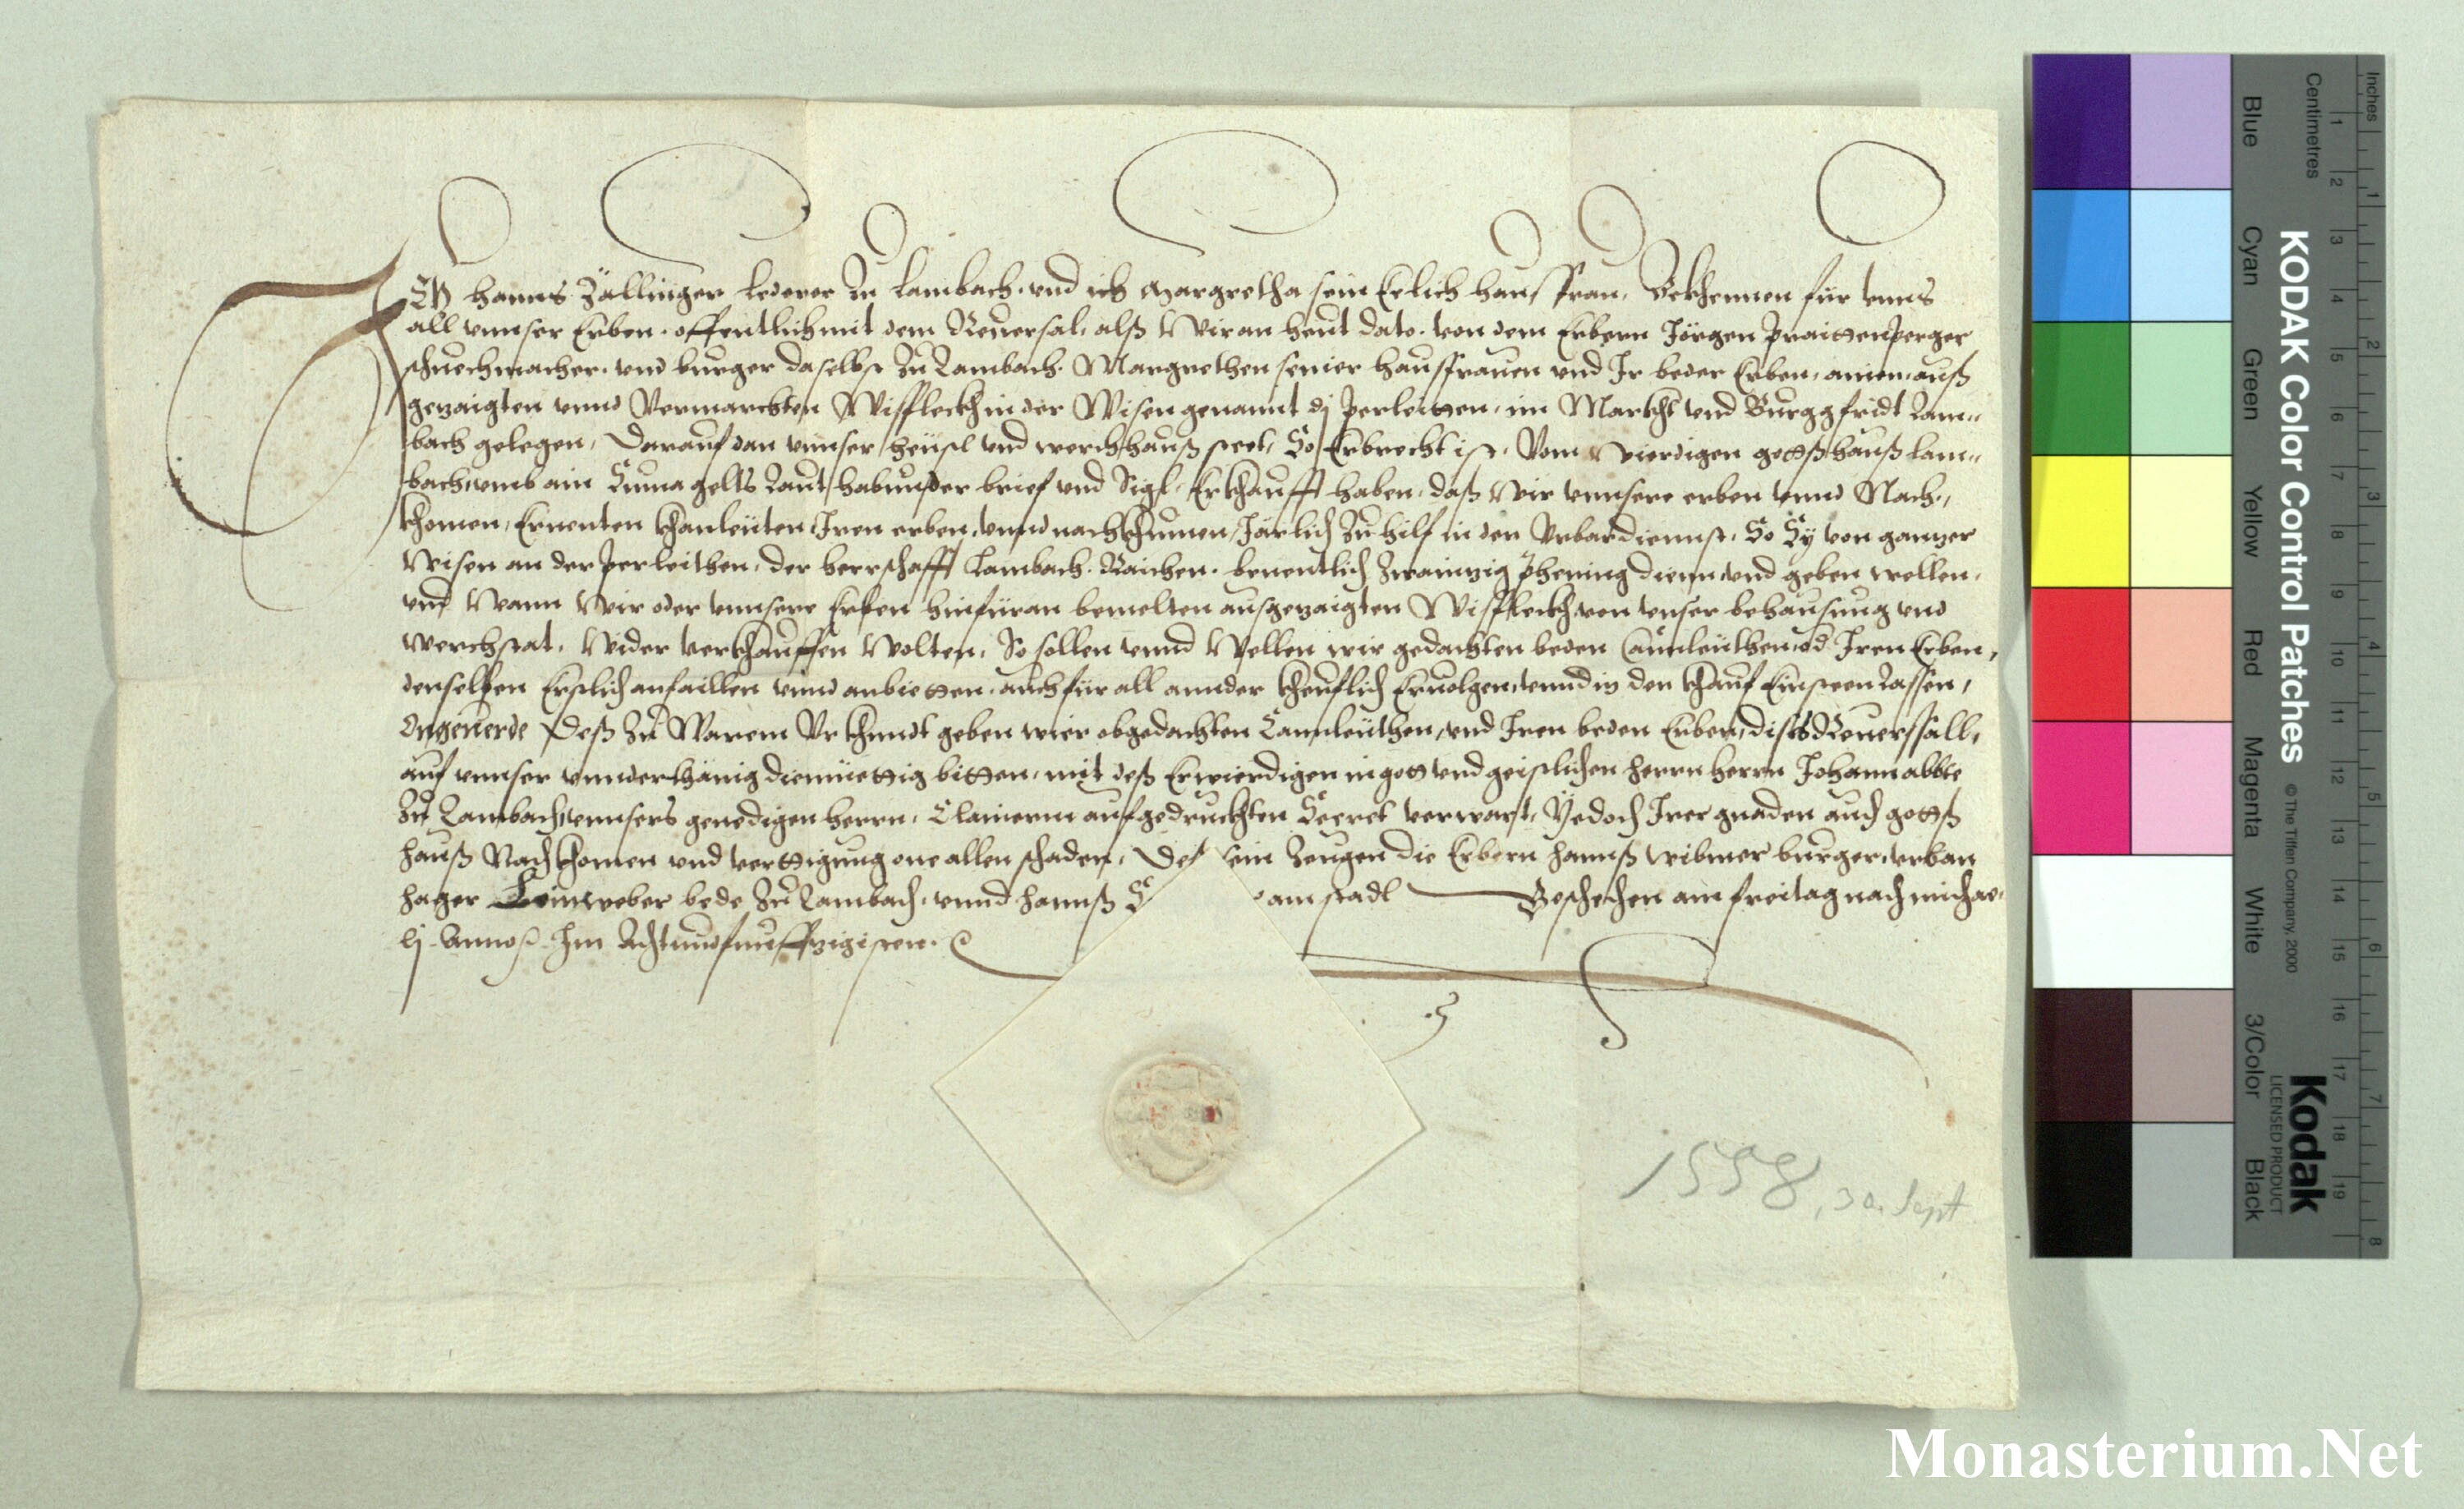 Ich hanns Zällinger lederer Zu Lambach. vnd ich Margretha sein Eelich hausfrau, Bekhennen für vnns
all vnnser Erben. offentlich mit dem Reuersal, alß Wir an heut dato. von dem Erbern Jörgen praittenperger
schuechmacher. vnd burger daselbst Zu Lambach. Margrethen seiner hausfrauen vnd Ir beder Erben, ainen auß
gezaigten vnnd Vermarckten Wissfleckh in der Wisen genannt dj perleitten, im Markht vnd Burggfridt Lam-
bach gelegen, Darauf dan vnnser heüsl vnd werchhauß steet, So Erbrecht ist, Vom Wierdigen gottßhauß Lam-
bach, vmb ain Suma gelts Laut habunder brief vnd Sigl, Erkhaufft haben, daß Wir vnnsere erben vnnd Nach-
khomen, Ernenten khanleüten Iren erben, vnnd nachkhumen, Järlich Zu hilf in den Vrbardiennst, So Sy von ganzer
Wisen an der perleithen, der herrschafft Lambach. Raichen. benentlich Zwainzig phening dienn, vnd geben wellen,
vnd Wann Wir oder vnnsere Erben hinfüran bemelten ausgezaigten Wissfleckh, von vnser behausung vnd
werchstat, Wider verkhauffen Wolten, So sollen vnnd Wellen wir gedachten beden Canleüthen, od Iren Erben,
denselben Erstlich anfaillen vnnd anbietten, auch für all annder kheuflich Eruolgen, vnnd in den khauf Einsteen Lassen,
Ongeuerde Deß Zu Warem Vrkhundt geben wier obgedachten Canleüthen, vnd Iren beden Erben, dises Reuerssall,
auf vnnser vnnderthänig diemüettig bitten, mit deß Erwierdigen in gott vnd geistlichen herrn herrn Johann abbte
Zu Lambach, vnnsers genedigen herrn, Clainerm aufgedruckhten Secret verwart, Yedoch Irer gnaden auch gottß
hauß Nachkhomen vnd verttigung one allen schaden, Des sein Zeugen die Erbern hannß Widmer burger, vrban
hager Leinweber bede Zu Lambach, vnnd hannß am stadl Beschechen am freitag nach michae-
lj Annos Im Achtundfunffzigisten.
1558, 30. Sept
KODAK Color Control Patches
© The Tiffen Company, 2000
Kodak
LICENSED PRODUCT
Blue Cyan Green Yellow Red Magenta White 3/Color Black
Centimetres 1 2 3 4 5 6 7 8 9 10 11 12 13 14 15 16 17 18 19
Inches 1 2 3 4 5 6 7 8
Monasterium.Net